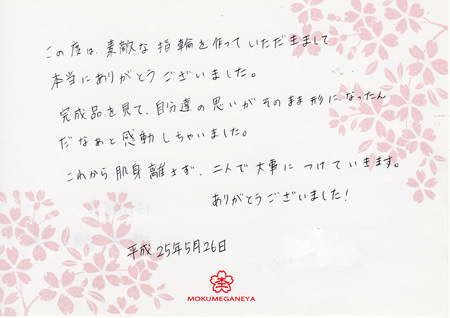 この度は、素敵な指輪を作っていただきまして
本当にありがとうございました。
完成品を見て、自分達の思いがそのまま形になったん
だなぁと感動しちゃいました。
これから肌身離さず、二人で大事につけていきます。
ありがとうございました!
平成25年5月26日
MOKUMEGANEYA